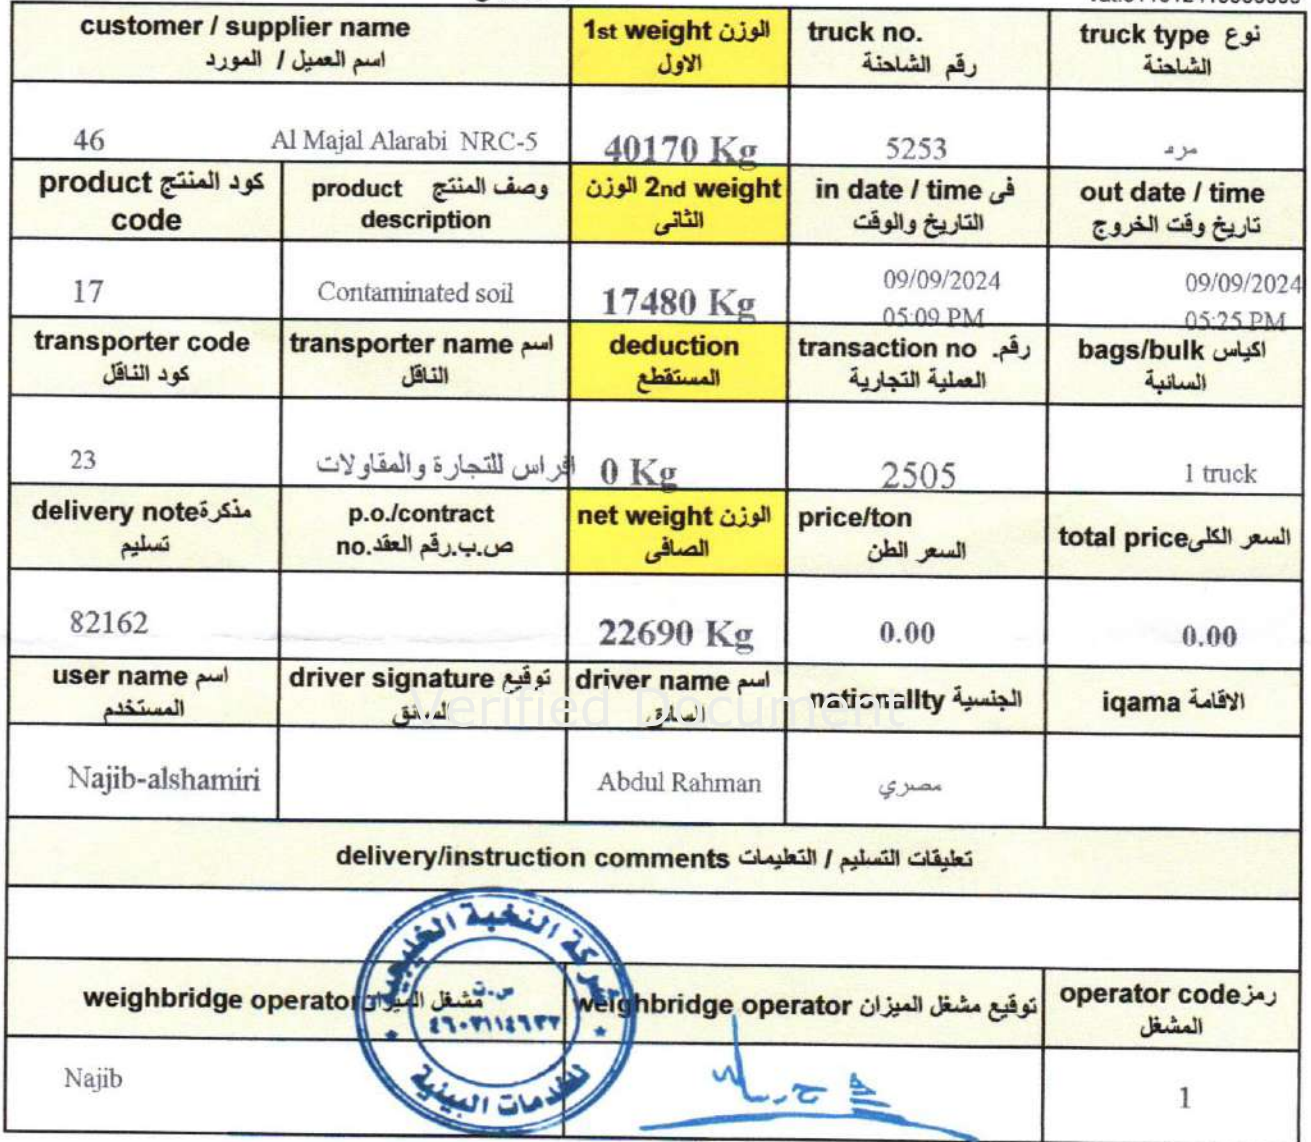 customer / supplier name
اسم العميل / المورد
1st weight الوزن
الاول
truck no.
رقم الشاحنة
truck type نوع
الشاحنة
46
Al Majal Alarabi NRC-5
40170 Kg
5253
مرد
product كود المنتج
code
product وصف المنتج
description
2nd weight الوزن
الثانى
in date / time فى
التاريخ والوقت
out date / time
تاريخ وقت الخروج
17
Contaminated soil
17480 Kg
09/09/2024
05:09 PM
09/09/2024
05:25 PM
transporter code
كود الناقل
transporter name اسم
الناقل
deduction
المستقطع
transaction no رقم.
العملية التجارية
bags/bulk اكياس
السائبة
23
افراس للتجارة والمقاولات
0 Kg
2505
1 truck
delivery note مذكرة
تسليم
p.o./contract
ص.ب.رقم العقد.no
net weight الوزن
الصافى
price/ton
السعر الطن
total price السعر الكلى
82162
22690 Kg
0.00
0.00
user name اسم
المستخدم
driver signature توقيع
السائق
driver name اسم
السائق
nationallty الجنسية
iqama الاقامة
Verified Document
Najib-alshamiri
Abdul Rahman
مصري
delivery/instruction comments تعليقات التسليم / التعليمات
weighbridge operator مشغل الميزان
weighbridge operator توقيع مشغل الميزان
operator code رمز
المشغل
Najib
1
شركة النخبة الخليجية
س.ت
للخدمات البيئية